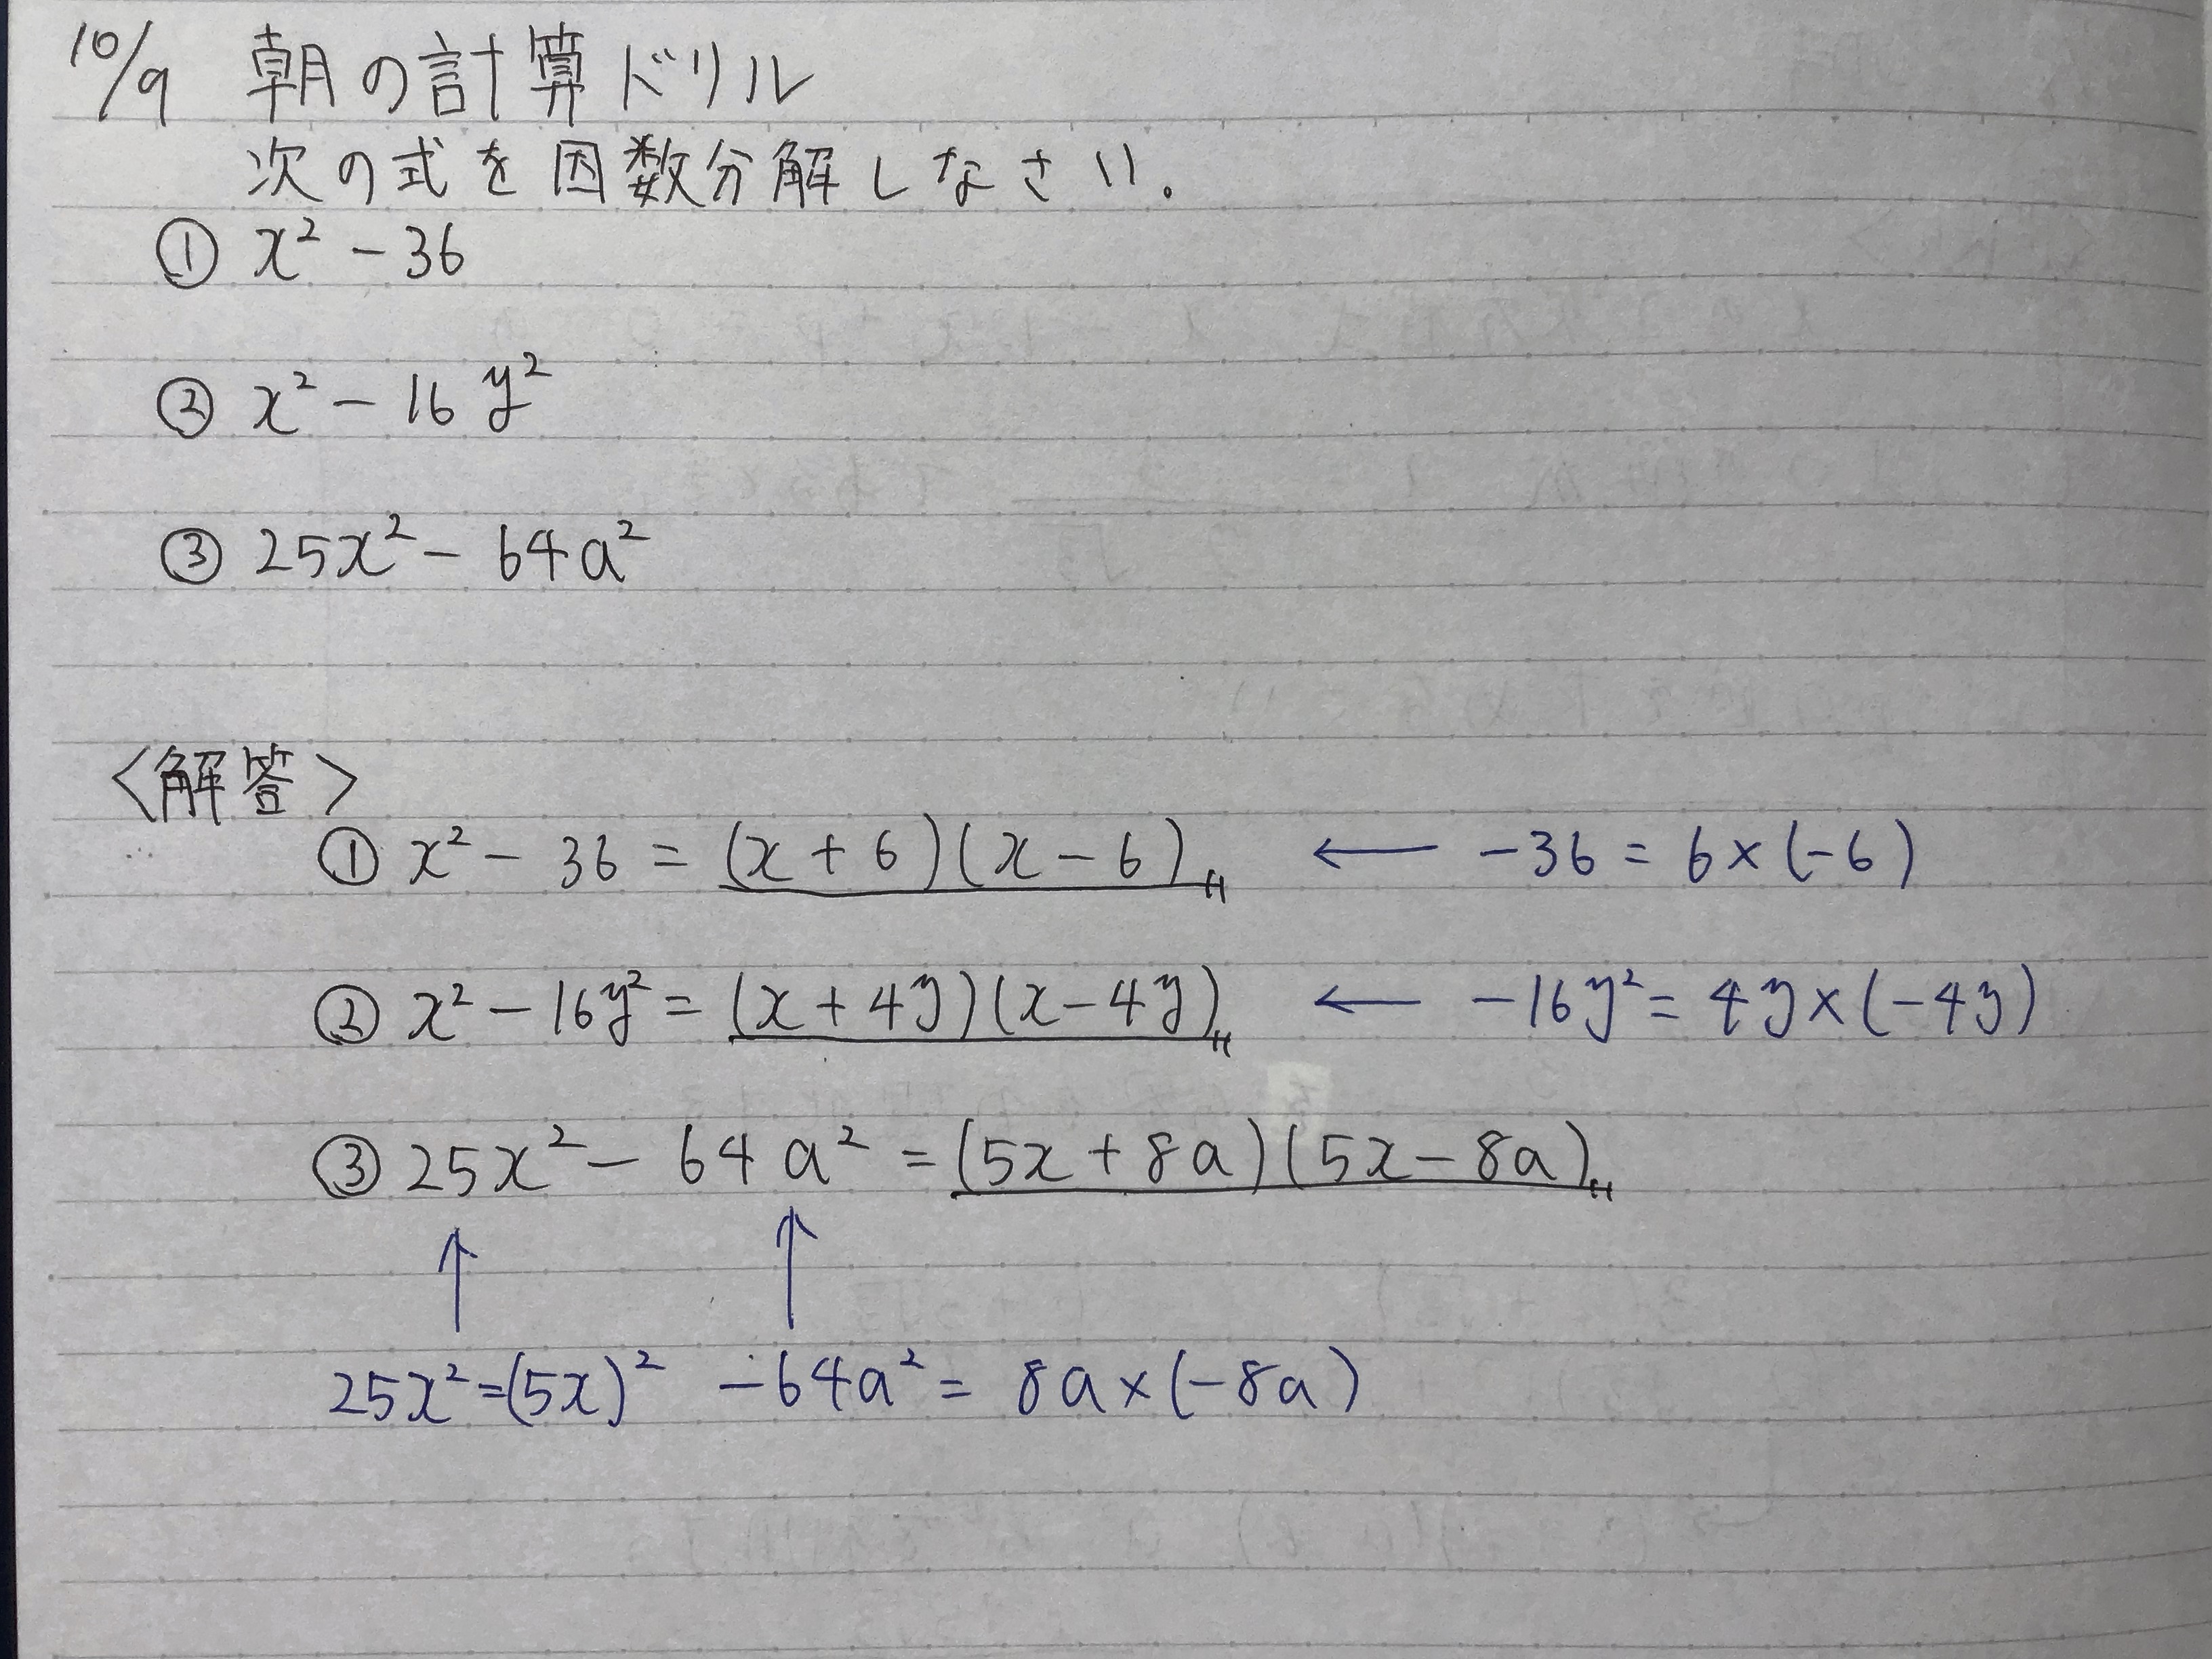 10/9 朝の計算ドリル
次の式を因数分解しなさい。
① x² - 36
② x² - 16y²
③ 25x² - 64a²
<解答>
① x² - 36 = (x + 6)(x - 6)〃 ← -36 = 6 × (-6)
② x² - 16y² = (x + 4y)(x - 4y)〃 ← -16y² = 4y × (-4y)
③ 25x² - 64a² = (5x + 8a)(5x - 8a)〃
↑ ↑
25x² = (5x)² -64a² = 8a × (-8a)